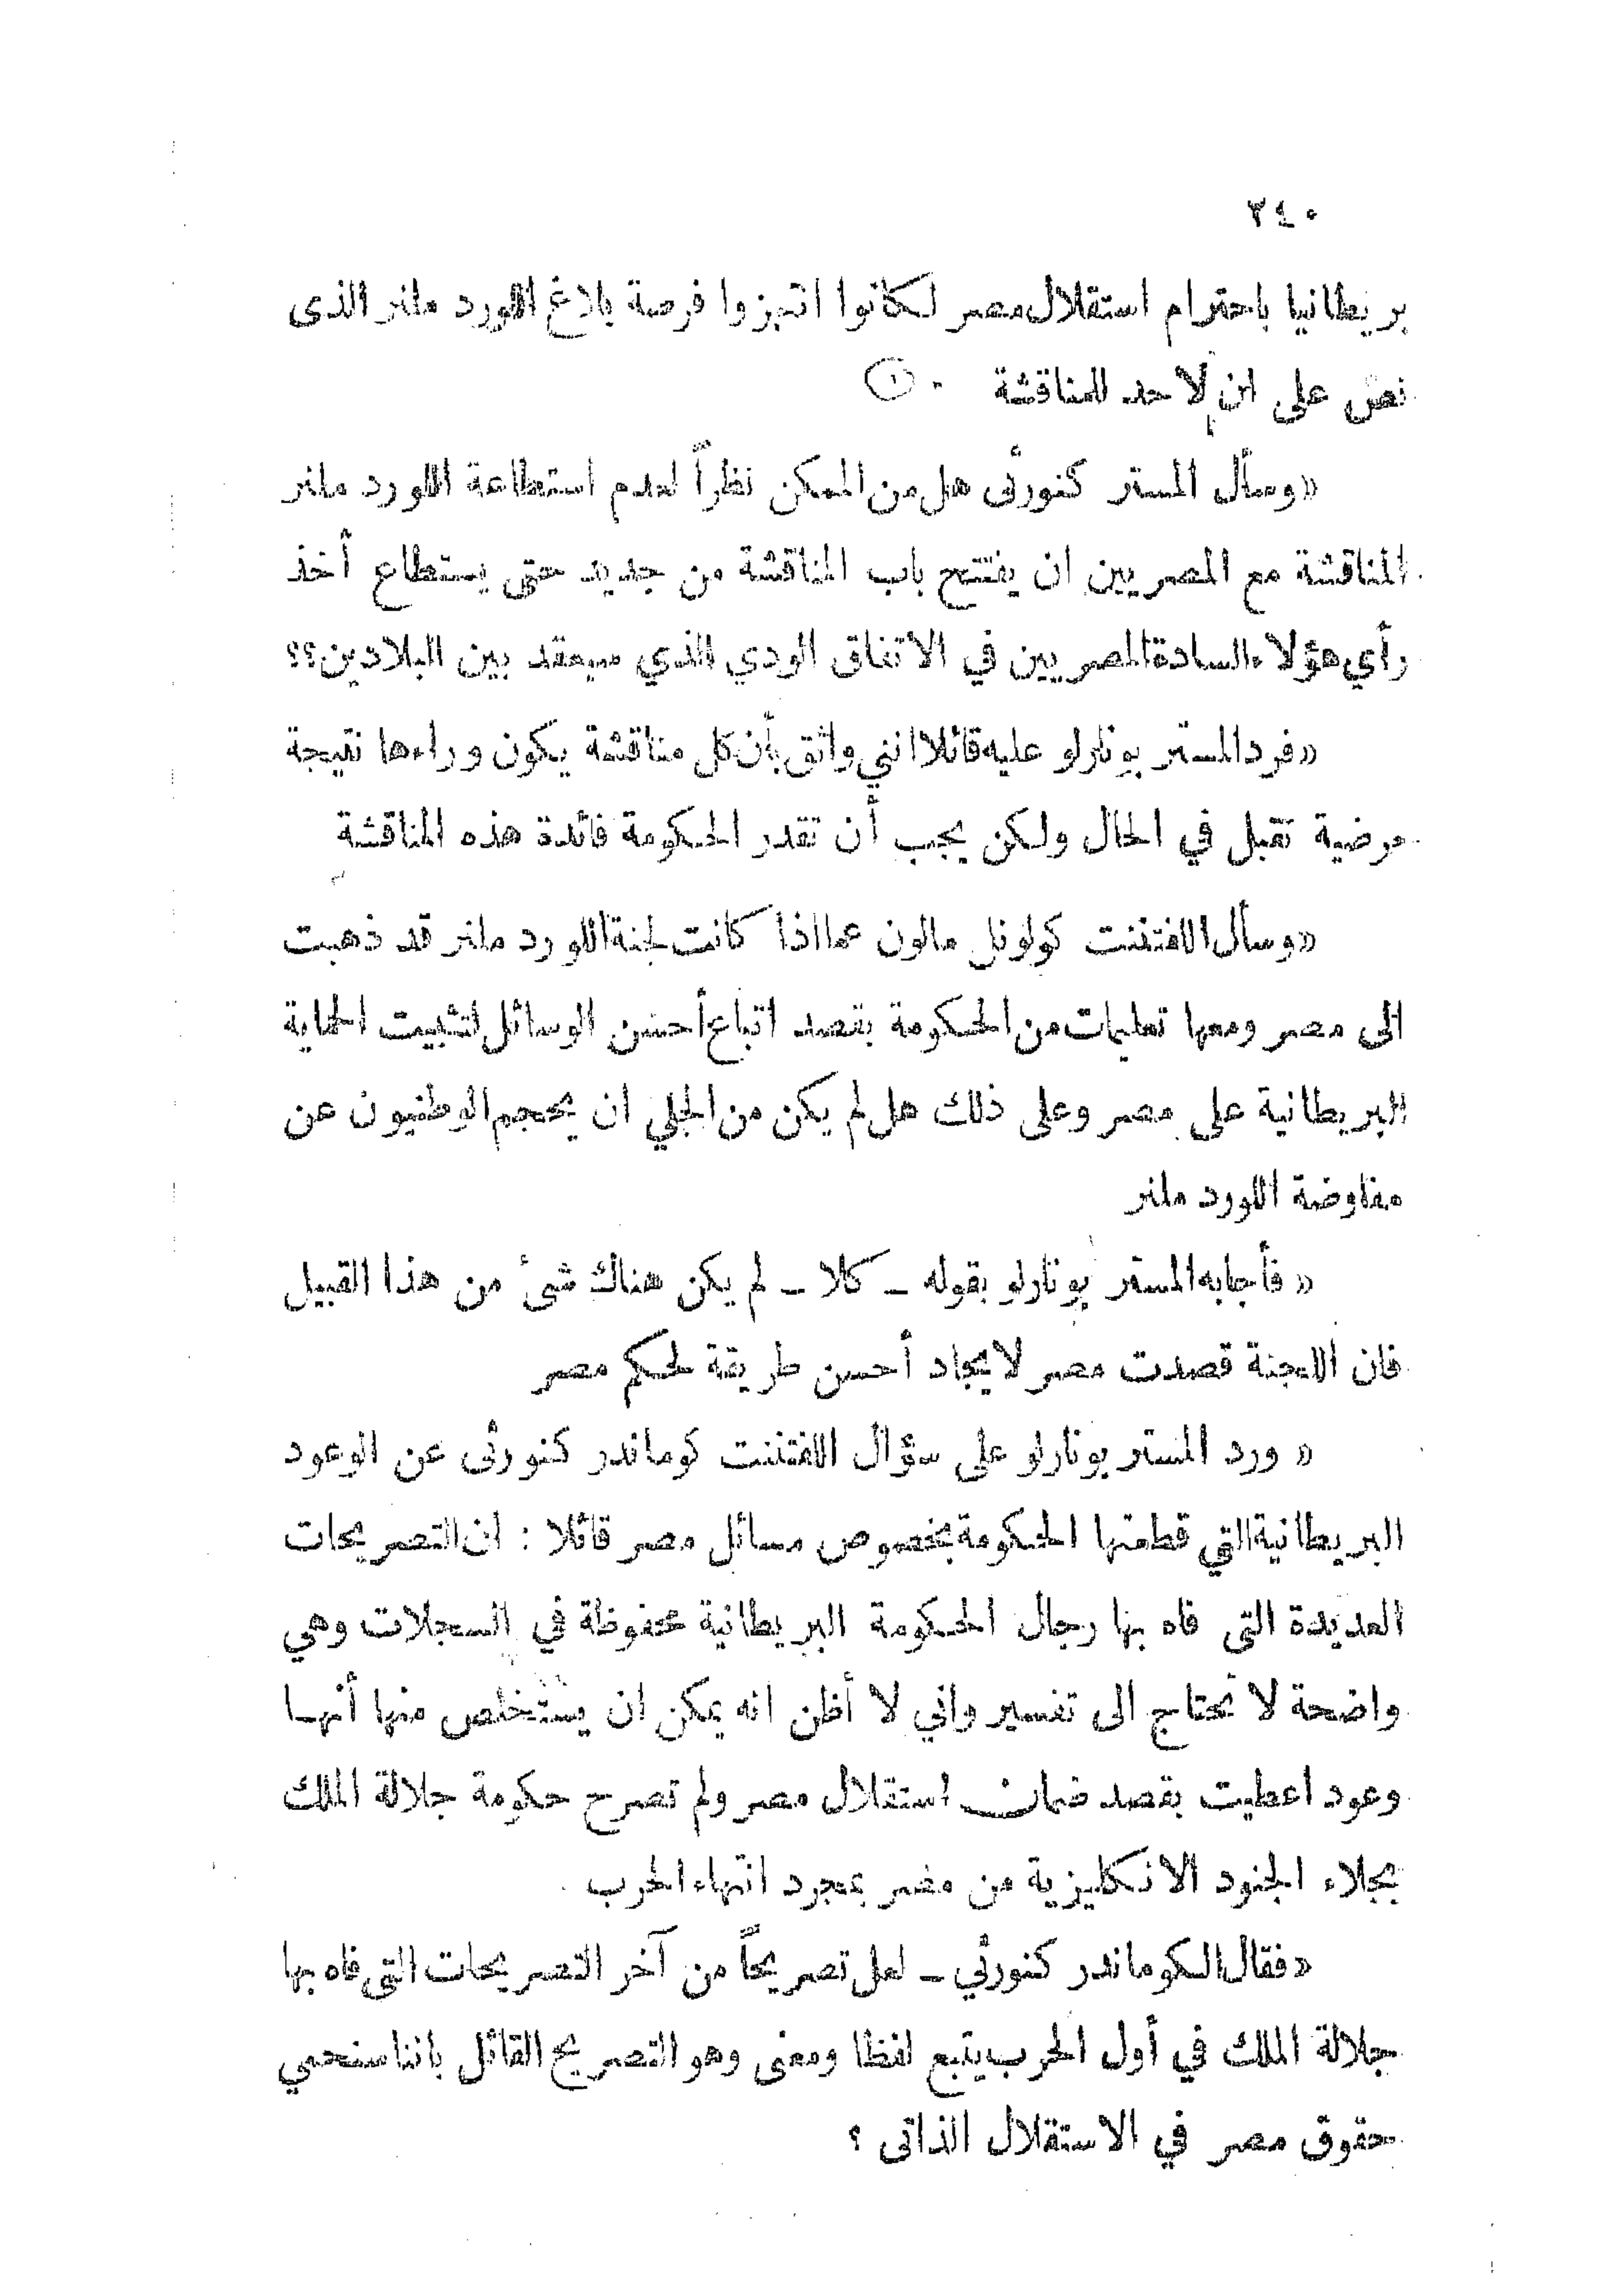 ٢٤٠
بريطانيا باحترام استقلال مصر لكانوا انتهزوا فرصة بلاغ اللورد ملنر الذى
نص على ان لا حد للمناقشة . (١)
«وسأل المستر كنورثى هل من الممكن نظراً لعدم استطاعة اللورد ملنر
المناقشة مع المصريين ان يفتتح باب المناقشة من جديد حتى يستطاع أخذ
رأي هؤلاء السادة المصريين في الاتفاق الودي الذي سيعقد بين البلادين؟؟
«فرد المستر بونارلو عليه قائلا انني واثق بأن كل مناقشة يكون وراءها نتيجة
مرضية تقبل في الحال ولكن يجب أن تقدر الحكومة فائدة هذه المناقشة
«وسأل اللفتننت كولونل مالون عما اذا كانت لجنة اللورد ملنر قد ذهبت
الى مصر ومعها تعليمات من الحكومة بقصد اتباع أحسن الوسائل لتثبيت الحماية
البريطانية على مصر وعلى ذلك هل لم يكن من الجلي ان يحجم الوطنيون عن
مفاوضة اللورد ملنر
« فأجابه المستر بونارلو بقوله ــ كلا ــ لم يكن هناك شئ من هذا القبيل
فان اللجنة قصدت مصر لايجاد أحسن طريقة لحكم مصر
« ورد المستر بونارلو على سؤال اللفتننت كوماندر كنورثى عن الوعود
البريطانية التي قطعتها الحكومة بخصوص مسائل مصر قائلا : ان التصريحات
العديدة التى فاه بها رجال الحكومة البريطانية محفوظة في السجلات وهي
واضحة لا تحتاج الى تفسير واني لا أظن انه يمكن ان يستخلص منها أنها
وعود اعطيت بقصد ضمان استقلال مصر ولم تصرح حكومة جلالة الملك
بجلاء الجنود الانكليزية من مصر بمجرد انتهاء الحرب
«فقال الكوماندر كنورثي ــ لعل تصريحاً من آخر التصريحات التى فاه بها
جلالة الملك في أول الحرب يتبع لفظا ومعنى وهو التصريح القائل باننا سنحمي
حقوق مصر في الاستقلال الذاتى ؟